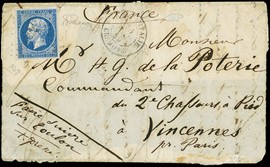 France
Monsieur
Mr H. G. de la Poterie
Commandant
du 2e Chasseurs à Pied
à Vincennes
pr. Paris
faire suivre
sur Toulon